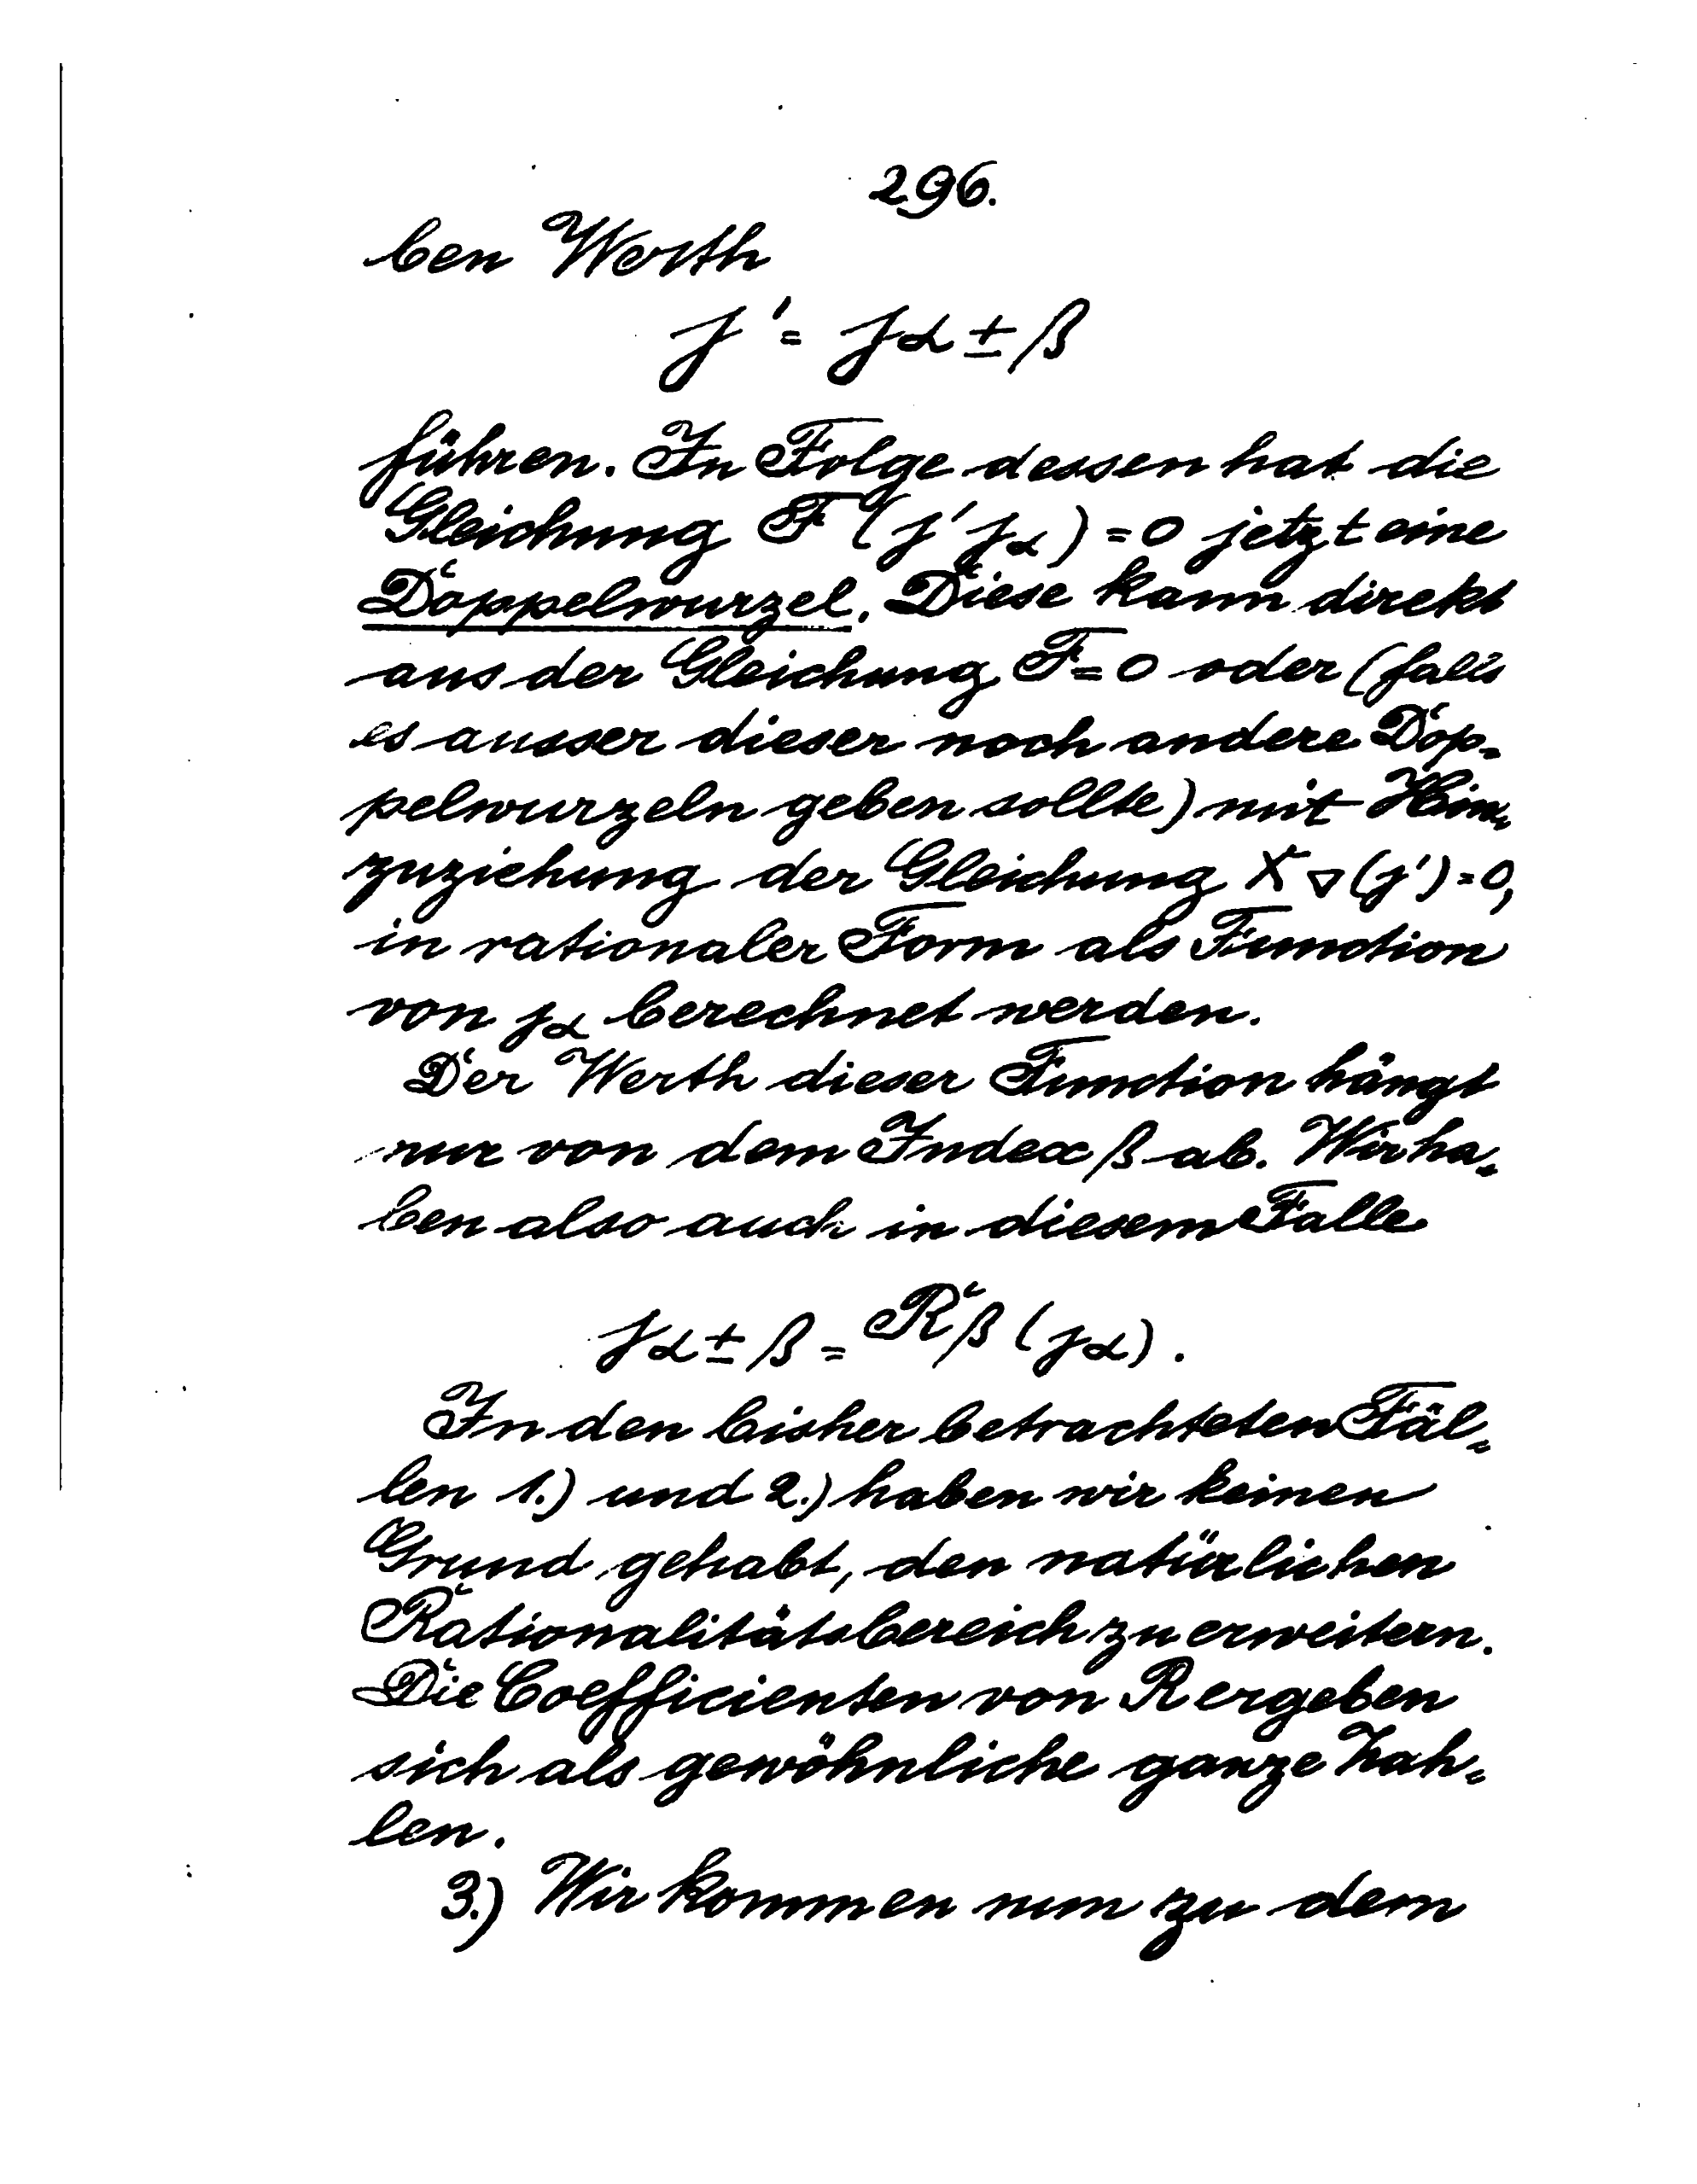 296.
ben Werth
j' = jα ± β
führen. In Folge dessen hat die
Gleichung F (j' jα) = 0 jetzt eine
Doppelwurzel. Diese kann direkt
aus der Gleichung F = 0 oder (falls
es ausser dieser noch andere Dop-
pelwurzeln geben sollte) mit Hin-
zuziehung der Gleichung X ▽ (j') = 0,
in rationaler Form als Function
von jα berechnet werden.
Der Werth dieser Function hängt
nur von dem Index β ab. Wir ha-
ben also auch in diesem Falle
jα ± β = Rβ (jα).
In den bisher betrachteten Fäl-
len 1.) und 2.) haben wir keinen
Grund gehabt, den natürlichen
Rationalitätsbereich zu erweitern.
Die Coefficienten von R ergeben
sich als gewöhnliche ganze Zah-
len.
3.) Wir kommen nun zu dem